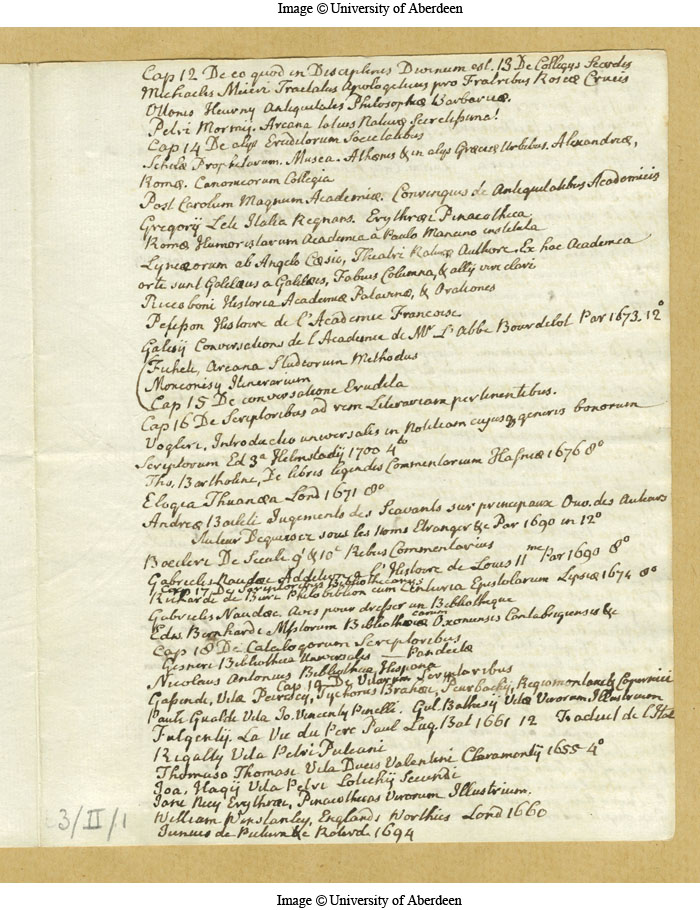 Image © University of Aberdeen
Cap 12 De eo quod in Disciplinis Divinum est. 13 De Collegys Secretis
Michaelis Meieri Tractatus Apologeticus pro Fratribus Roseæ Crucis
Ottonis Heurny Antiquitates Philosophiæ Barbaricæ.
Petri Mormij. Arcana totius Naturæ Secretissima!
Cap 14 De alys Eruditorum Societatibus
Scholæ Prophetarum. Musea. Athenis & in alys Græciæ Urbibus. Alexandriæ,
Romæ. Canonicorum Collegia
Post Carolum Magnum Academiæ. Conringius de Antiquitatibus Academicis
Gregorij Leti Italia Regnans. Erythræi Pinacotheca
Romæ Humoristarum Academia à Paulo Mancino instituta
Lynceorum ab Angelo Cæsio, Theatri Naturæ Authore. Ex hac Academia
orti sunt Galilæus a Galilæis, Fabius Columna, & allij viri clari
Riccoboni Historia Academiæ Patavinæ, & Orationes
Pelisson Histoire de l'Academie Francoise.
Galisij Conversations de l'Academie de Mr. L'Abbe Bourdelot Par 1673. 12°
Ficheti, Arcana Studiorum Methodus
Monconisy Itinerarium
Cap 15 De conversatione Erudita
Cap 16 De Scriptoribus ad rem Literariam pertinentibus.
Vogleri, Introductio universalis in Notitiam cujusq generis bonorum
Scriptorum Ed 3a Helmstadij 1700 4to
Tho. Bartholini, De libris legendis Commentarium Hafniæ 1676 8°
Elogia Thuanæa Lond 1671 8°
Andreæ Bailleti Jugements des Scavants sur principaux Ouv. des Auteurs
Auteur Deguisez sous les Noms Etranger &c Par 1690 in 12°
Boecleri De Seculi 9i & 10i Rebus Commentarius
Gabrielis Naudæi Addition a l'Histoire de Louis 11me Par 1690 8°
Cap 17 De Scriptoribus Bibliothecarys
Richardi de Buri Philobiblion cum Centuria Epistolarum Lypsiæ 1674 8°
Gabrielis Naudæi Avis pour dresser un Bibliotheque
Edw. Bernhardi Msstorum Bibliothecæ carum Oxoniensis Cantabrigiensis &c
Cap 18 De Catalogorum Scriptoribus
Gesneri Bibliotheca Universalis — Pandectæ
Nicolaus Antonius Bibliotheca Hispana
Cap 19 De Vitarum Scriptoribus
Gassendi, Vitæ Peirescij, Tychonis Brahæi, Peurbachij, Regiomontani & Copernici
Pauli Gualdi Vita Jo. Vincenty Pinelli. Gul. Bathesij Vitæ Virorum Illustrium
Fulgentij. La Vie du Pere Paul Lug. Bat 1661 12 Traduit de l'Ital
Rigalty Vita Petri Puteani
Thomaso Thomasi Vita Ducis Valentini Claramontij 1655 4°
Joa. Hagij Vita Petri Lotichij Secundi
Jani Nicij Erythræi, Pinacothecas Virorum Illustrium.
William Winstanley, Englands Worthies Lond 1660
3/II/1
Image © University of Aberdeen